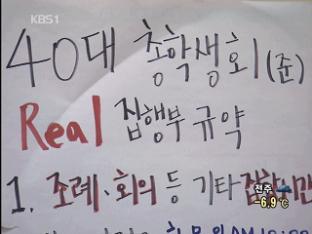 KBS1
40대 총학생회(준)
Real 집행부 규약
1. 조례·회의 등 기타 집합시간
전주
-6.9℃